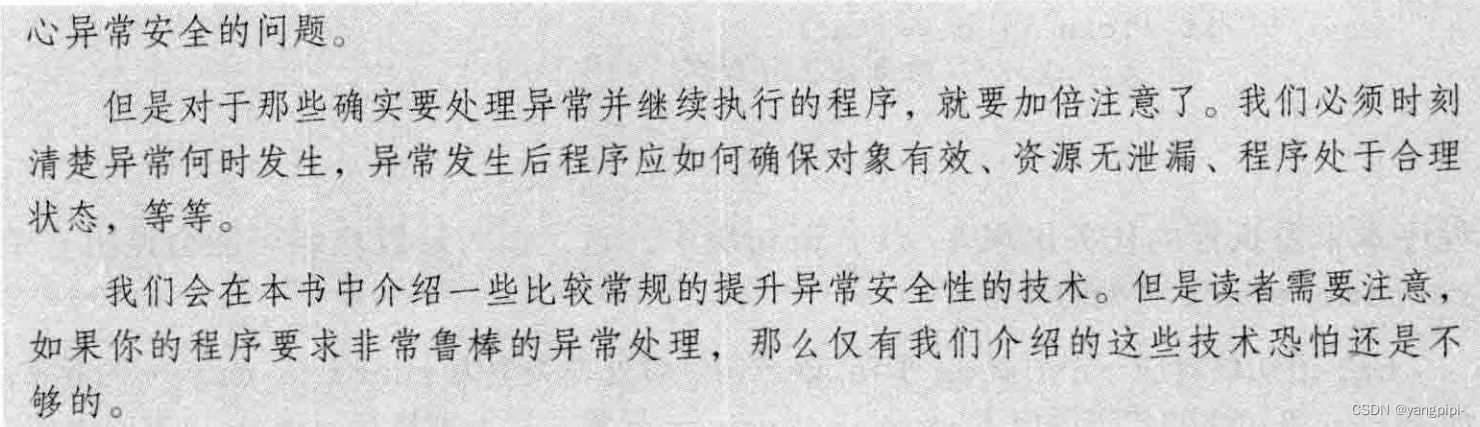 心异常安全的问题。
但是对于那些确实要处理异常并继续执行的程序，就要加倍注意了。我们必须时刻
清楚异常何时发生，异常发生后程序应如何确保对象有效、资源无泄漏、程序处于合理
状态，等等。
我们会在本书中介绍一些比较常规的提升异常安全性的技术。但是读者需要注意，
如果你的程序要求非常鲁棒的异常处理，那么仅有我们介绍的这些技术恐怕还是不
够的。
CSDN @yangpipi-